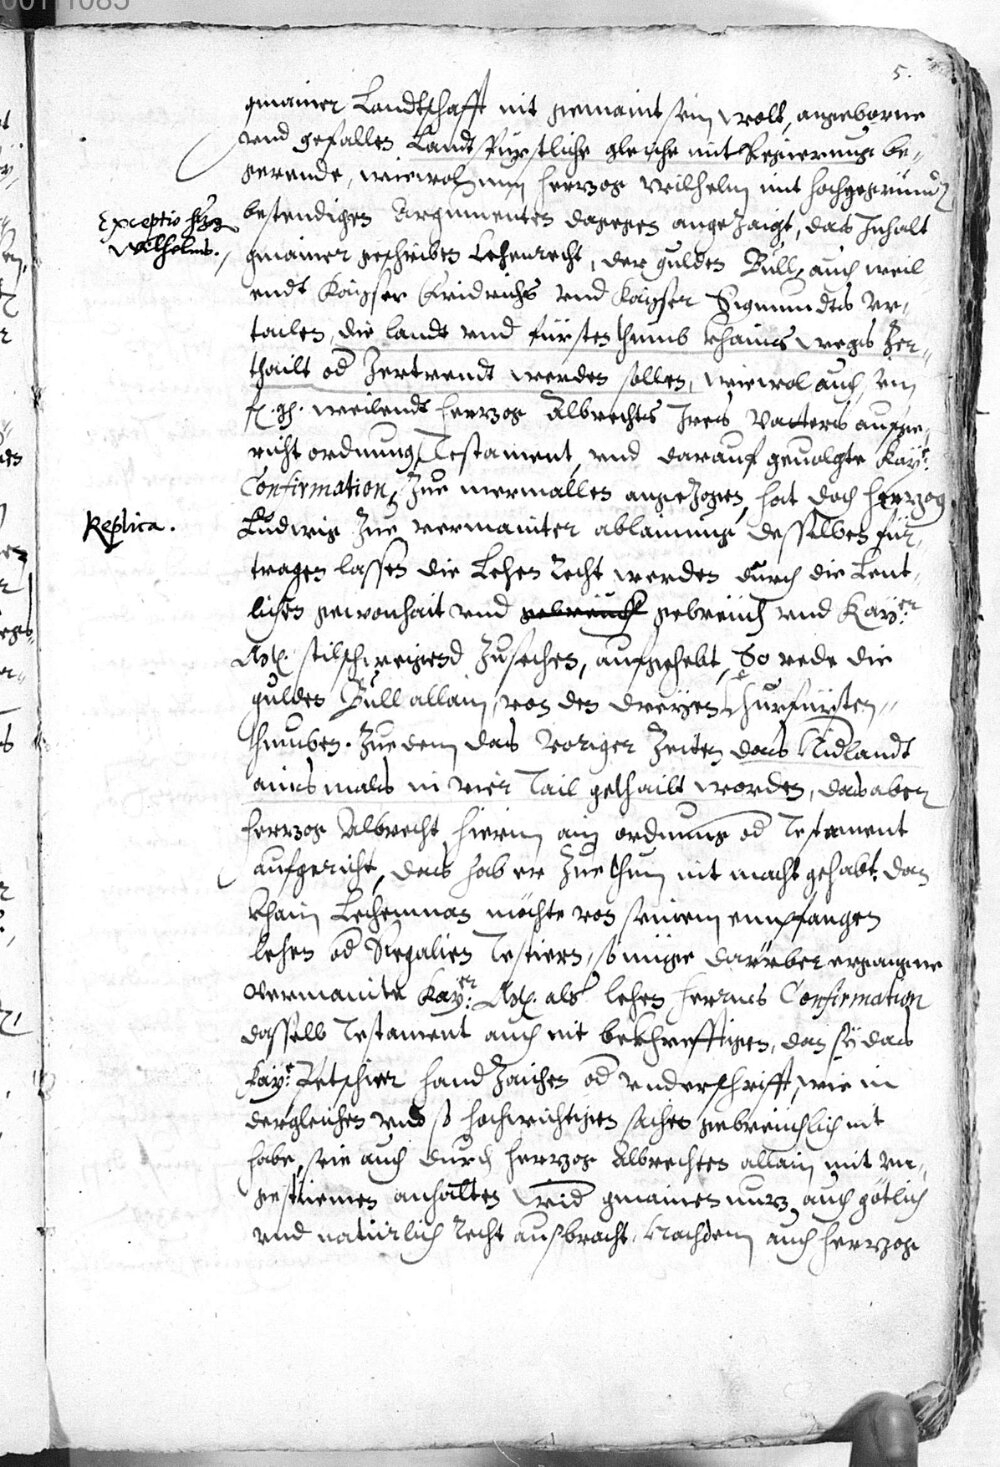 5.
gmainer Landtschafft nit gemaint sein wolt, angeborne
vnd gefallen Landt Fürstliche gleiche mit Regierung be-
gerende, wiewol nun Herzog Wilhelm mit hochgegründ
Exceptio Hzg
Wilhelms.
bestendigen Argumenten dagegen angezaigt, das Inhalt
gmainer geschriben Lehenrecht, der gulden Bull, auch weil
endt Kayser Fridrichs vnd Kayser Sigmundts vr-
tailen, die landt vnd fürstenthumb khains wegs zer-
thailt od zertrendt werden sollen, wiewol auch, ein
f. gn. weilendt Herzog Albrechts Ires Vatters aufge-
richt ordnung, Testament, vnd darauf geuolgte Kay:
Confirmation, zue mermallen angezogen, hat doch Herzog
Replica.
Ludwig zue vermainter ablainung desselben für-
tragen lassen die Lehen Recht werden durch die Leut-
lichen gewonhait vnd gebreuch gebreuch vnd Kay:er
Mt. stilschweigend zusechen, aufgehebt, So rede die
gulden Bull allain, von den dreyen Churfürsten-
thumben. Zue dem das voriger Zeiten das Nidlandt
ains mals in vier Tail gethailt worden, das aber
Herzog Albrecht hierin ain ordnung od Testament
aufgericht, des hab er zue thun nit macht gehabt. Dan
khain Lechenman möchte von seinem empfangen
lehen od Regalien Testiern, so müge darüber ergangne
vermainte Kay:er Mt. als lehen herrns Confirmation
dasselb Testament auch nit bekhrefftigen, dan sy das
Kay: Petschier hand Zaichen od vnderschrifft, wie in
dergleichen vnd so hochwichtigen sachen gebreuchlich nit
habe, sie auch durch Herzog Albrechten allain mit vn-
gestiemen anhalten wid gmainen nuz auch götlich
vnd natürlich Recht außbracht. Nachdem auch Herzog